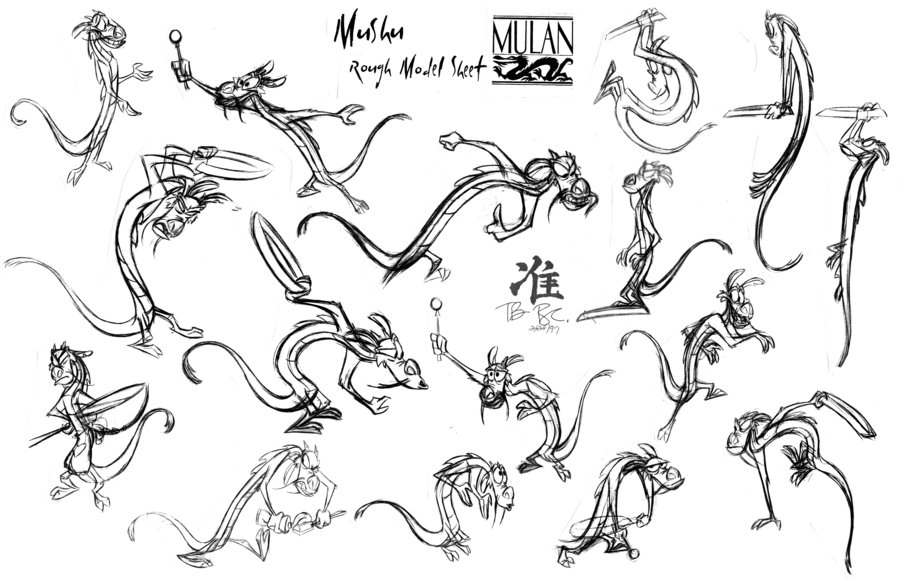 Mushu
Rough Model Sheet
MULAN
准
TB- BC.